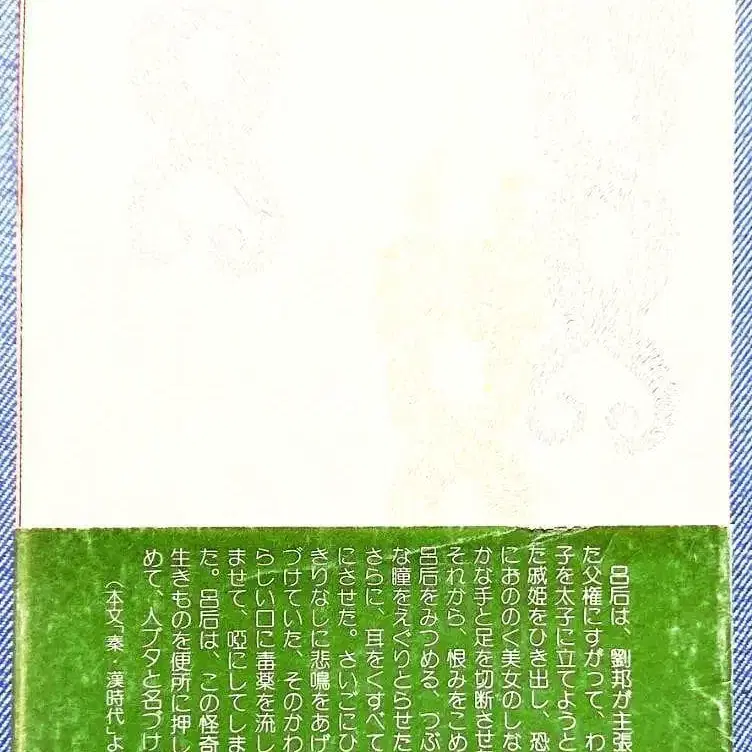 呂后は、劉邦が主張
た父権にすがって、わ
子を太子に立てようと
た戚姫をひき出し、恐
におののく美女のしな
かな手と足を切断させ
それから、恨みをこめ
呂后をみつめる、つぶ
な瞳をえぐりとらせた
さらに、耳をくすべて
にさせた。さいごにひ
きりなしに悲鳴をあげ
づけていた、そのかわ
らしい口に毒薬を流し
ませて、啞にしてしま
た。呂后は、この怪奇
生きものを便所に押し
めて、人ブタと名づけ
(本文「秦 漢時代」よ